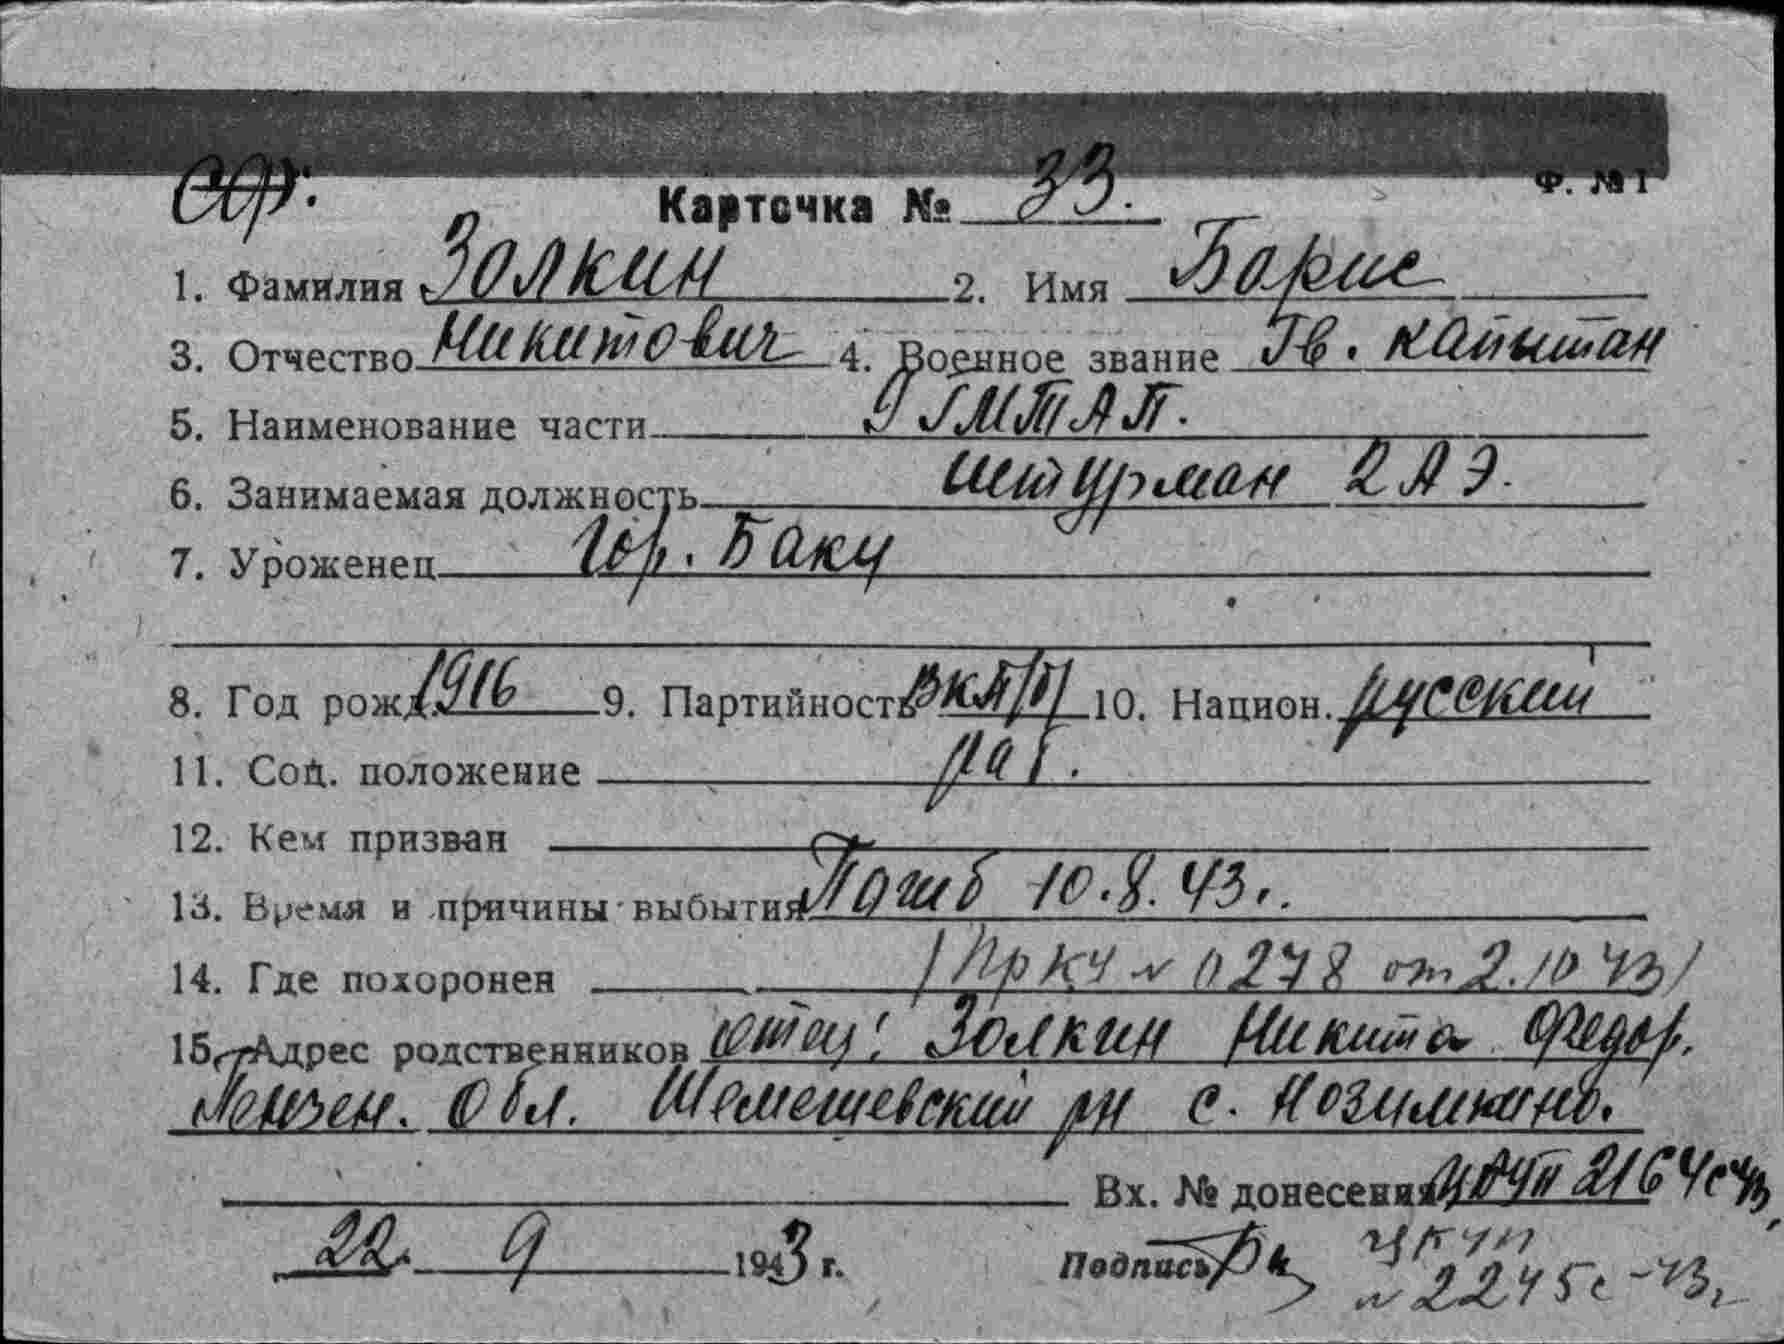 Ф. № 1
Карточка № 33.
1. Фамилия Золкин 2. Имя Борис
3. Отчество Никитович 4. Военное звание Гв. капытан
5. Наименование части 9 ГМТАП.
6. Занимаемая должность штурман 2 АЭ.
7. Уроженец Гор. Баку
8. Год рожд. 1916 9. Партийность ВКП/б/ 10. Национ. русский
11. Соц. положение раб.
12. Кем призван
13. Время и причины выбытия Погиб 10.8.43г.
14. Где похоронен /Пр КЧ № 0278 от 2.10 43/
15. Адрес родственников отец: Золкин Никита Федор.
Пензен. Обл. Шемешевский рн с. Нозимкино.
Вх. № донесения 2164с 43
22. 9 1943 г. Подпись
№ 2245с-43г